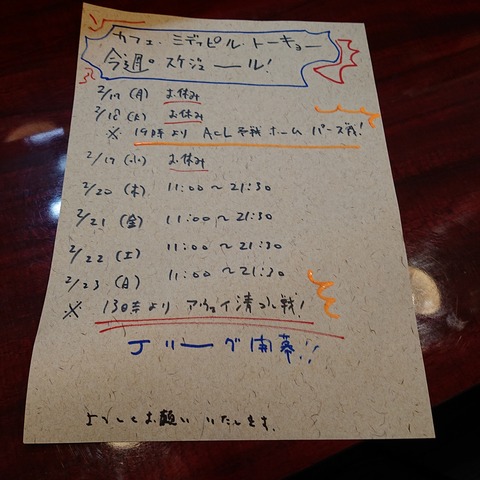 カフェ・ミデッピル・トーキョー
今週。スケジュール!
2/17(月) お休み
2/18(火) お休み
※ 19時より ACL 苦戦 ホーム パース戦!
2/19(水) お休み
2/20(木) 11:00~21:30
2/21(金) 11:00~21:30
2/22(土) 11:00~21:30
2/23(日) 11:00~21:30
※ 13時より アウェイ清水戦!
Jリーグ開幕!!
よろしくお願いいたします。